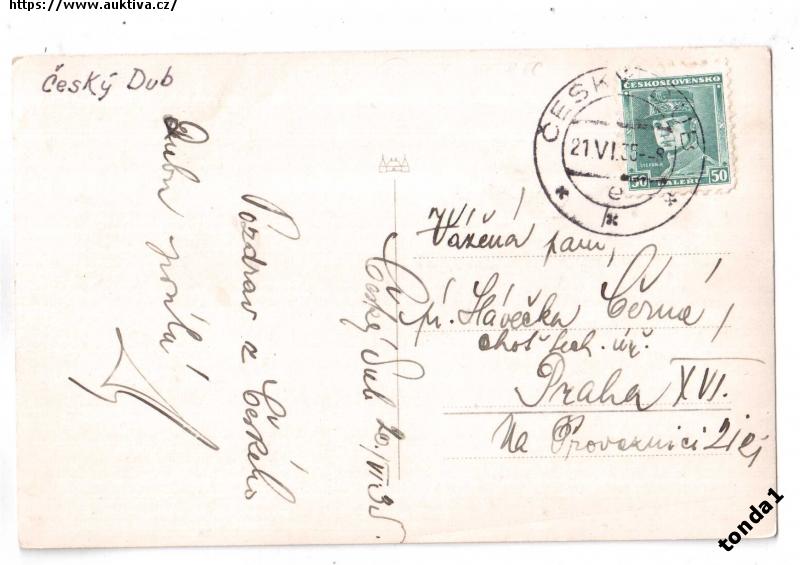 https://www.auktiva.cz/
Český Dub
ČESKOSLOVENSKO
ČESKÝ DUB
21.VI.35
e
50 HALÉŘŮ 50
Pozdrav z Českého
Dubu
Český Dub 20/VI 35.
Vážená paní,
pí. Slávečka Černá,
choť tech. úř.
Praha XVI.
Na Provaznici
tonda1